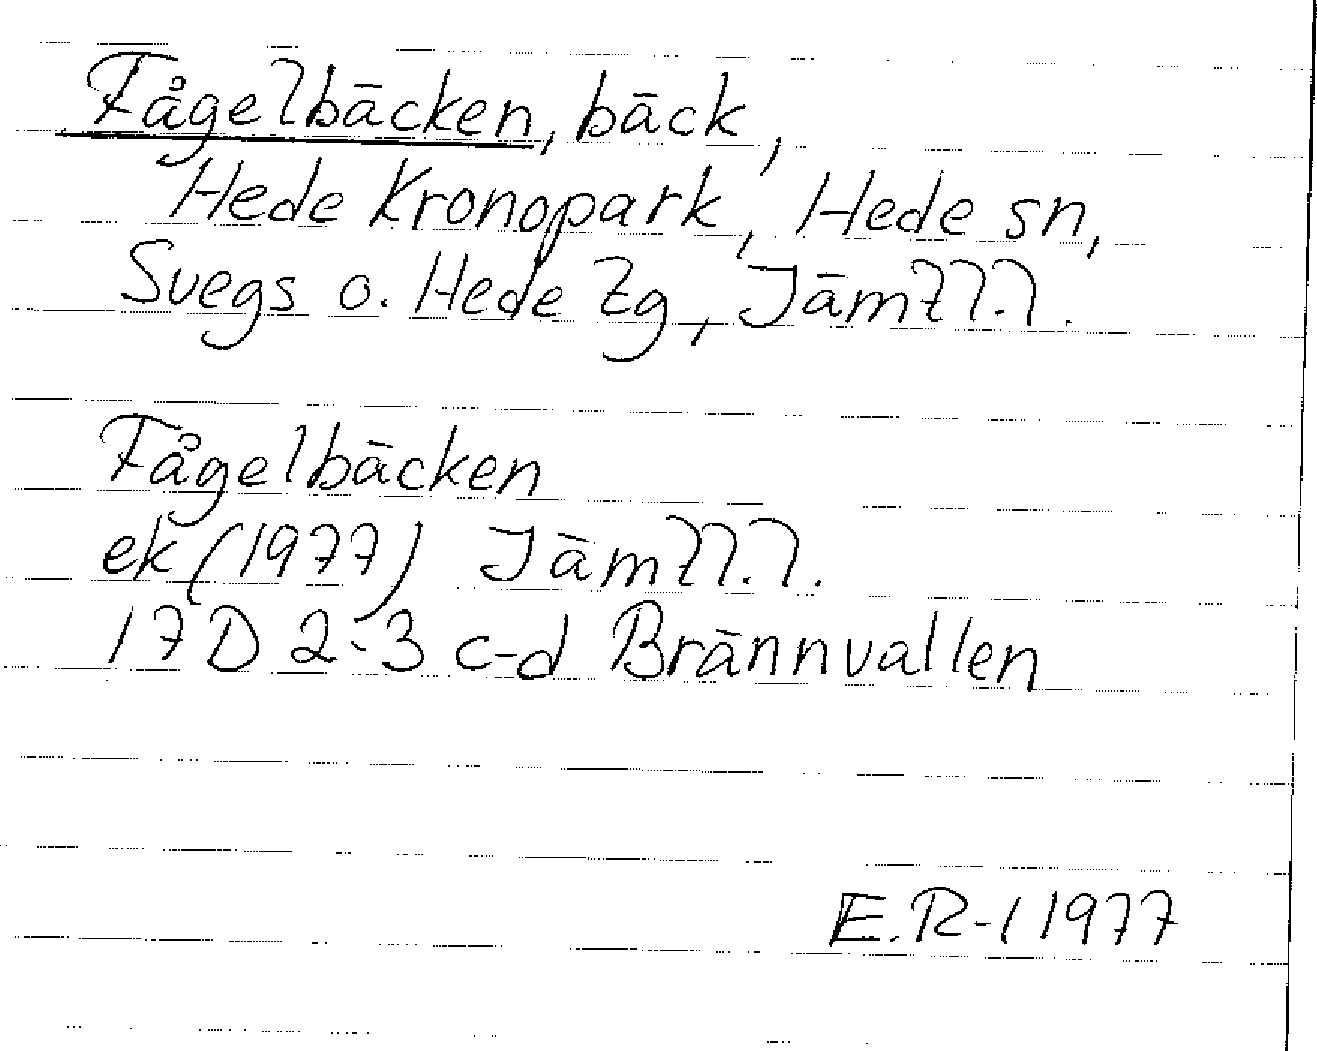 Fågelbäcken, bäck,
Hede Kronopark, Hede sn,
Svegs o. Hede tg, Jämtl.l.
Fågelbäcken
ek (1977) Jämtl.l.
17D 2-3 c-d Brännvallen
E.R-l 1977